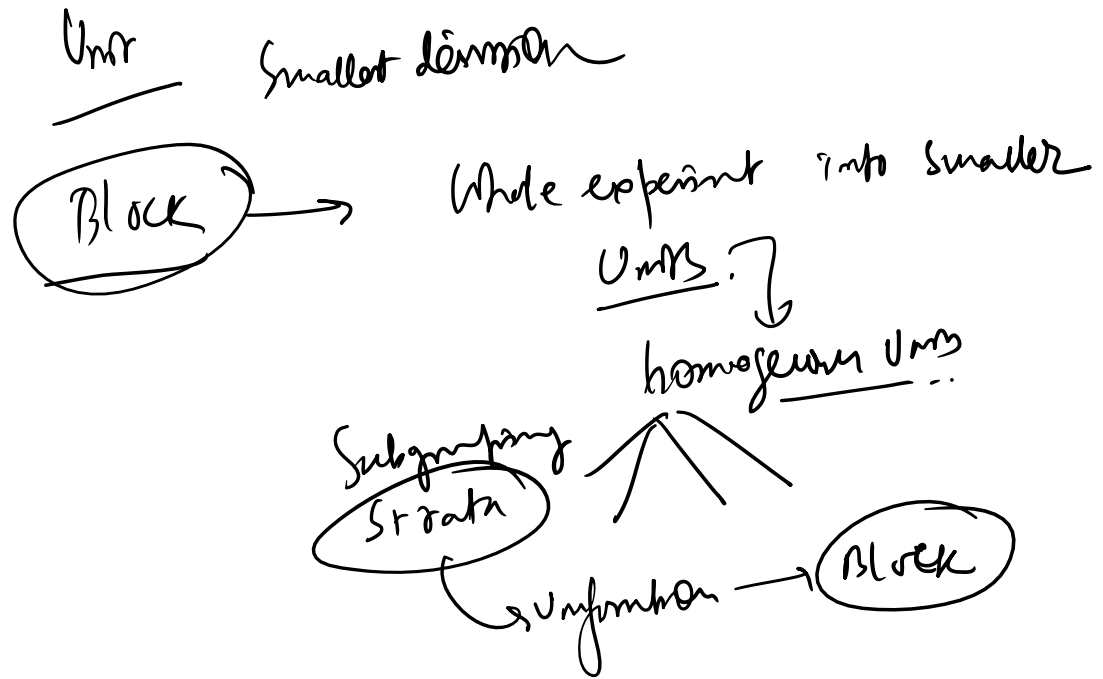 Unit
Smallest division
Block
Whole experimt into smaller
Units
homogenous Units
Subgrouping
Strata
Block